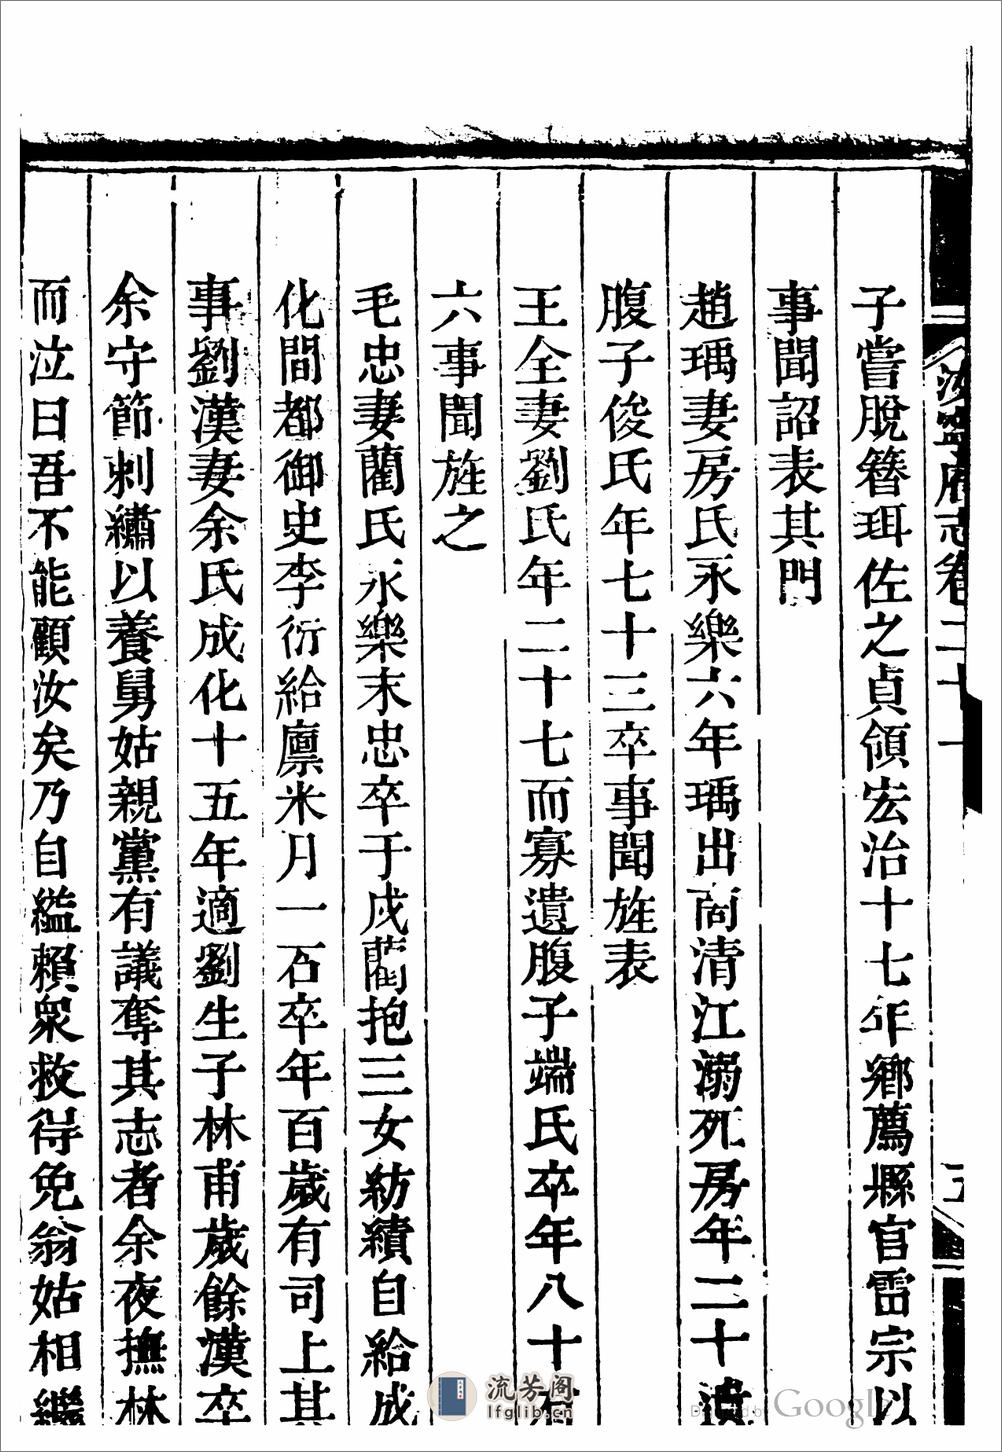 汝寧府志卷二十一
子嘗脫簪珥佐之貞領宏治十七年鄉薦縣官雷宗以
事聞詔表其門
趙瑀妻房氏永樂六年瑀出商清江溺死房年二十遺
腹子俊氏年七十三卒事聞旌表
王全妻劉氏年二十七而寡遺腹子端氏卒年八十有
六事聞旌之
毛忠妻藺氏永樂末忠卒于戍藺抱三女紡績自給成
化間都御史李衍給廪米月一石卒年百歲有司上其
事劉漢妻余氏成化十五年適劉生子林甫歲餘漢卒
余守節刺繡以養舅姑親黨有議奪其志者余夜撫林
而泣曰吾不能顧汝矣乃自縊賴眾救得免翁姑相繼
流芳阁
lfglib.cn
Google